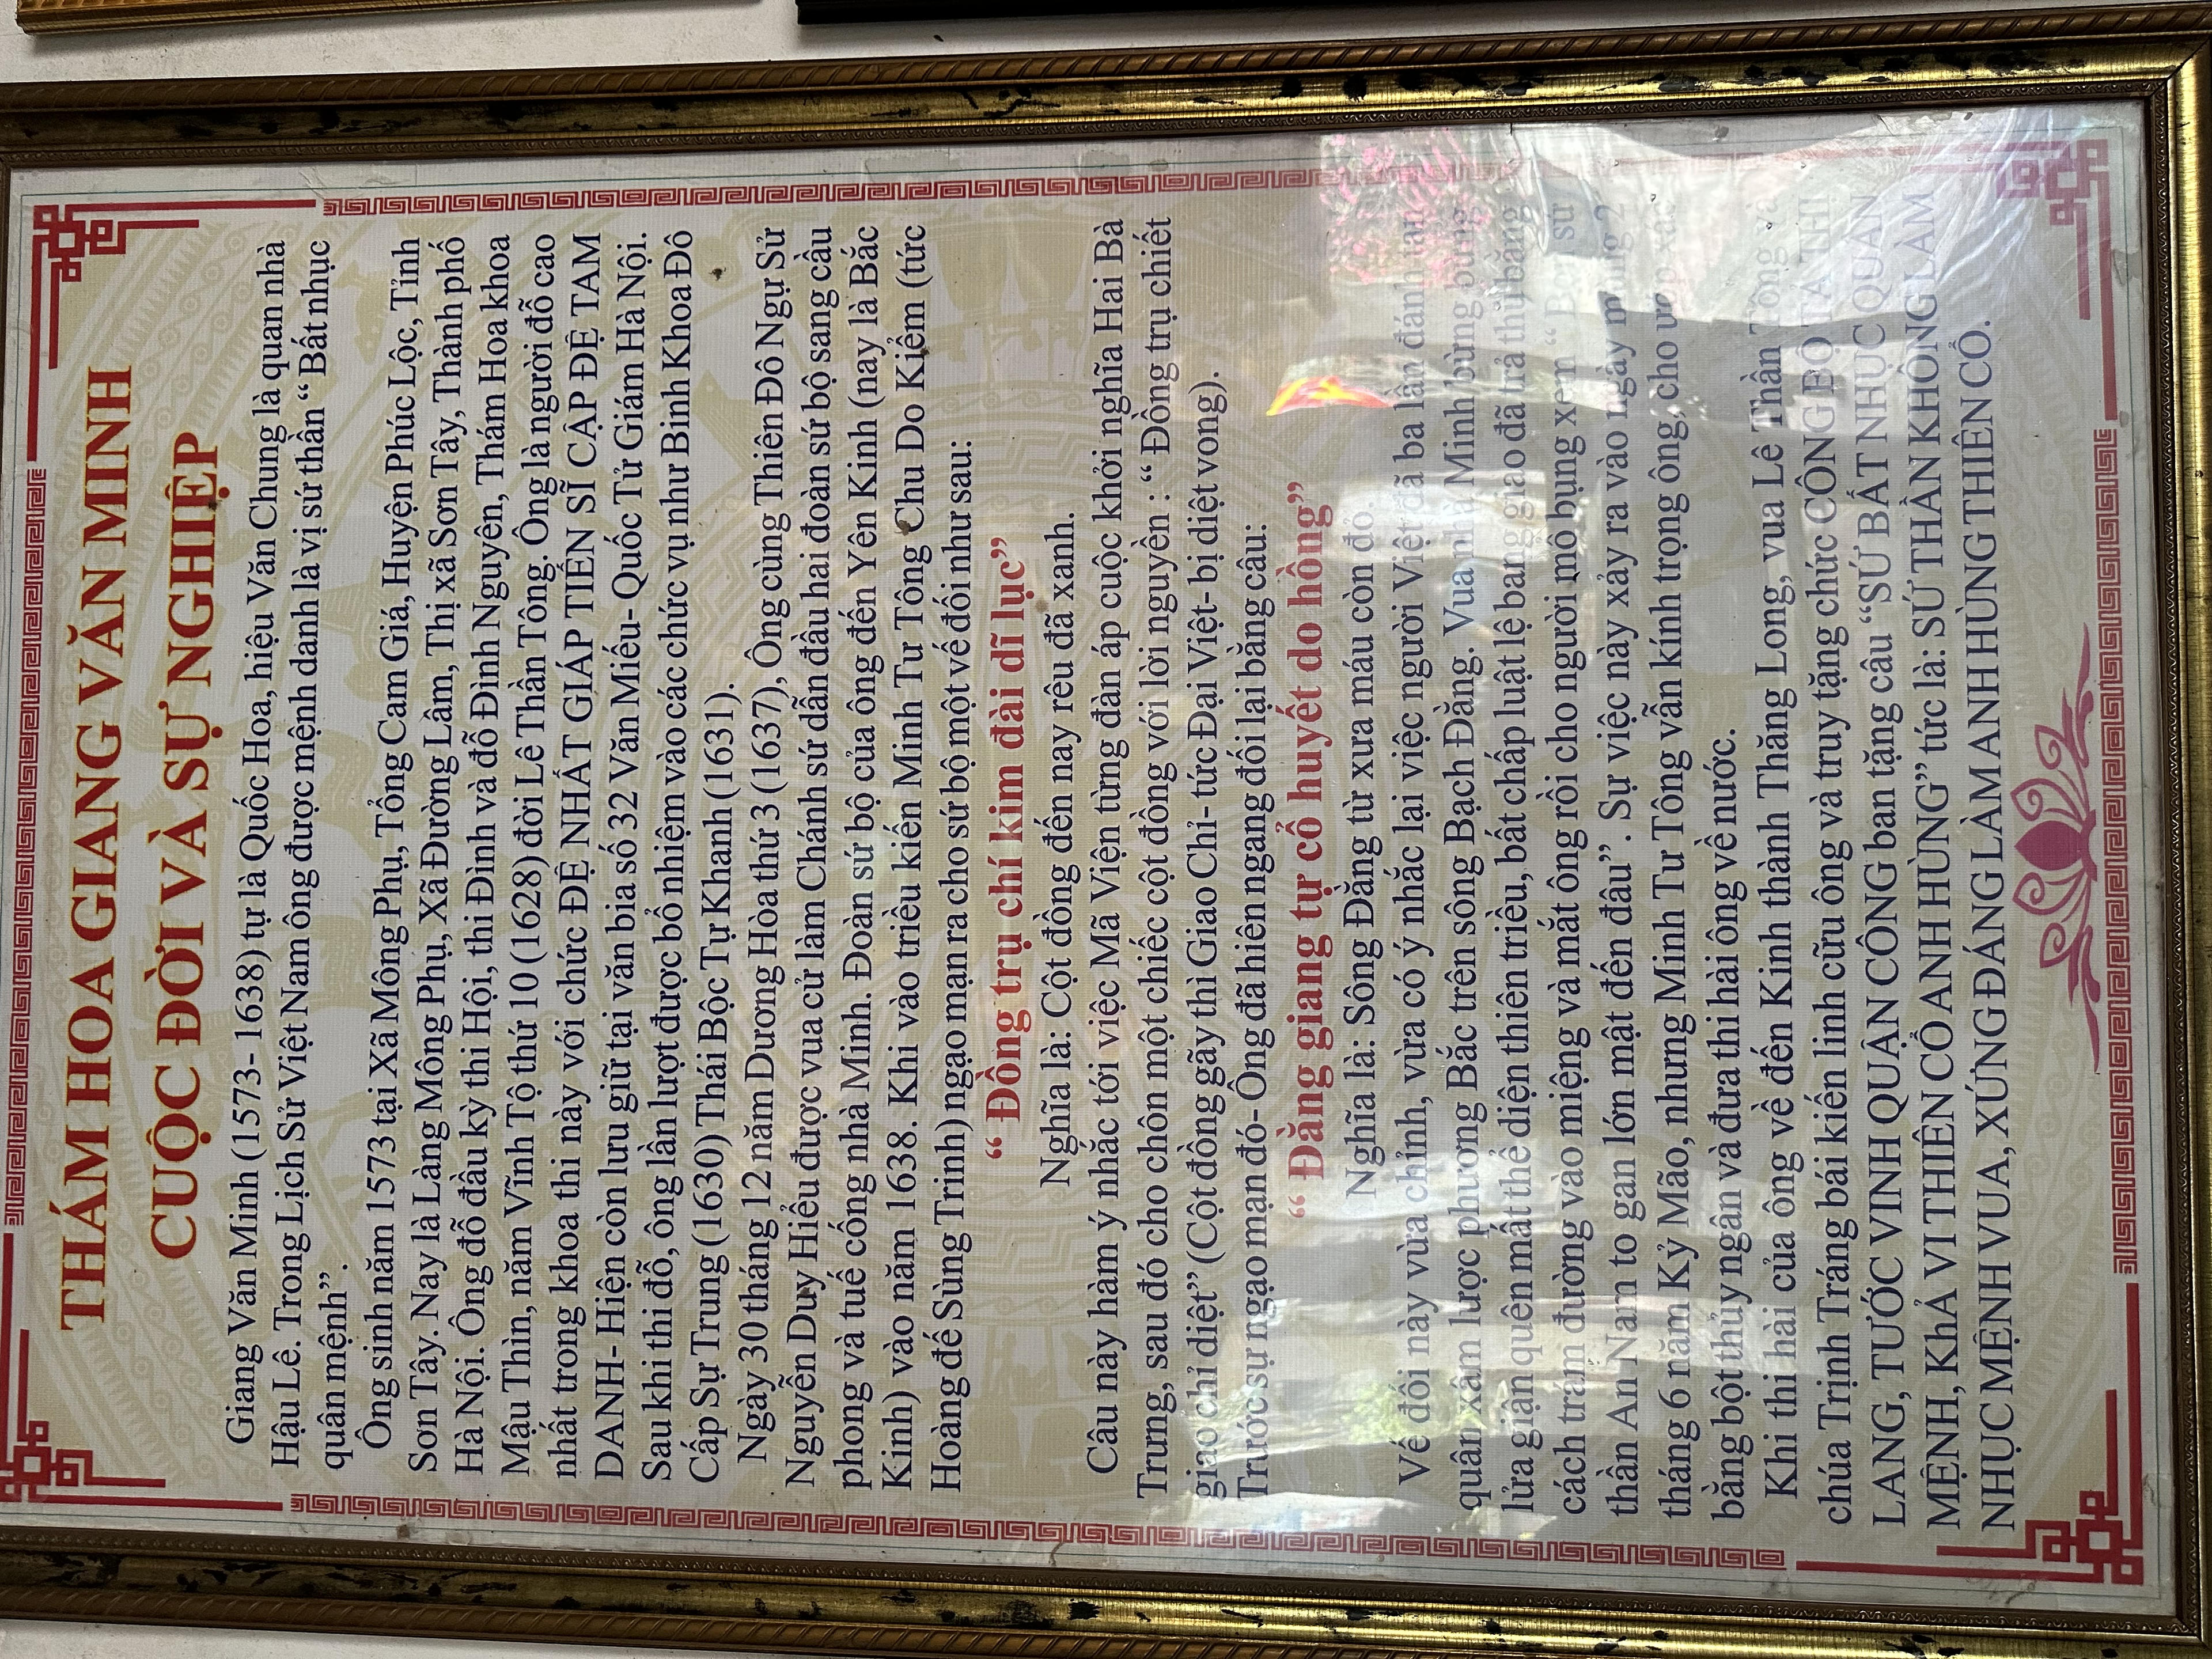 THÁM HOA GIANG VĂN MINH
CUỘC ĐỜI VÀ SỰ NGHIỆP
Giang Văn Minh (1573- 1638) tự là Quốc Hoa, hiệu Văn Chung là quan nhà
Hậu Lê. Trong Lịch Sử Việt Nam ông được mệnh danh là vị sứ thần “ Bất nhục
quân mệnh”.
Ông sinh năm 1573 tại Xã Mông Phụ, Tổng Cam Giá, Huyện Phúc Lộc, Tỉnh
Sơn Tây. Nay là Làng Mông Phụ, Xã Đường Lâm, Thị xã Sơn Tây, Thành phố
Hà Nội. Ông đỗ đầu kỳ thi Hội, thi Đình và đỗ Đình Nguyên, Thám Hoa khoa
Mậu Thìn, năm Vĩnh Tộ thứ 10 (1628) đời Lê Thần Tông. Ông là người đỗ cao
nhất trong khoa thi này với chức ĐỆ NHẤT GIÁP TIẾN SĨ CẬP ĐỆ TAM
DANH- Hiện còn lưu giữ tại văn bia số 32 Văn Miếu- Quốc Tử Giám Hà Nội.
Sau khi thi đỗ, ông lần lượt được bổ nhiệm vào các chức vụ như Binh Khoa Đô
Cấp Sự Trung (1630) Thái Bộc Tự Khanh (1631).
Ngày 30 tháng 12 năm Dương Hòa thứ 3 (1637), Ông cùng Thiên Đô Ngự Sử
Nguyễn Duy Hiểu được vua cử làm Chánh sứ dẫn đầu hai đoàn sứ bộ sang cầu
phong và tuế cống nhà Minh. Đoàn sứ bộ của ông đến Yên Kinh (nay là Bắc
Kinh) vào năm 1638. Khi vào triều kiến Minh Tư Tông Chu Do Kiểm (tức
Hoàng đế Sùng Trinh) ngạo mạn ra cho sứ bộ một vế đối như sau:
“ Đồng trụ chí kim đài dĩ lục”
Nghĩa là: Cột đồng đến nay rêu đã xanh.
Câu này hàm ý nhắc tới việc Mã Viện từng đàn áp cuộc khởi nghĩa Hai Bà
Trưng, sau đó cho chôn một chiếc cột đồng với lời nguyền : “ Đồng trụ chiết
giao chỉ diệt” (Cột đồng gãy thì Giao Chỉ- tức Đại Việt- bị diệt vong).
Trước sự ngạo mạn đó- Ông đã hiên ngang đối lại bằng câu:
“ Đằng giang tự cổ huyết do hồng”
Nghĩa là: Sông Đằng từ xưa máu còn đỏ.
Vế đối này vừa chỉnh, vừa có ý nhắc lại việc người Việt đã ba lần đánh tan
quân xâm lược phương Bắc trên sông Bạch Đằng. Vua nhà Minh bừng bừng
lửa giận quên mất thể diện thiên triều, bất chấp luật lệ bang giao đã trả thù bằng
cách trám đường vào miệng và mắt ông rồi cho người mổ bụng xem “ sứ
thần An Nam to gan lớn mật đến đâu”. Sự việc này xảy ra vào ngày 2
tháng 6 năm Kỷ Mão, nhưng Minh Tư Tông vẫn kính trọng ông, cho ướp xác
bằng bột thủy ngân và đưa thi hài ông về nước.
Khi thi hài của ông về đến Kinh thành Thăng Long, vua Lê Thần Tông và
chúa Trịnh Tráng bái kiến linh cữu ông và truy tặng chức CÔNG BỘ TẢ THỊ
LANG, TƯỚC VINH QUẬN CÔNG ban tặng câu “SỨ BẤT NHỤC QUÂN
MỆNH, KhẢ VI THIÊN CỔ ANH HÙNG” tức là: SỨ THẦN KHÔNG LÀM
NHỤC MỆNH VUA, XỨNG ĐÁNG LÀM ANH HÙNG THIÊN CỔ.